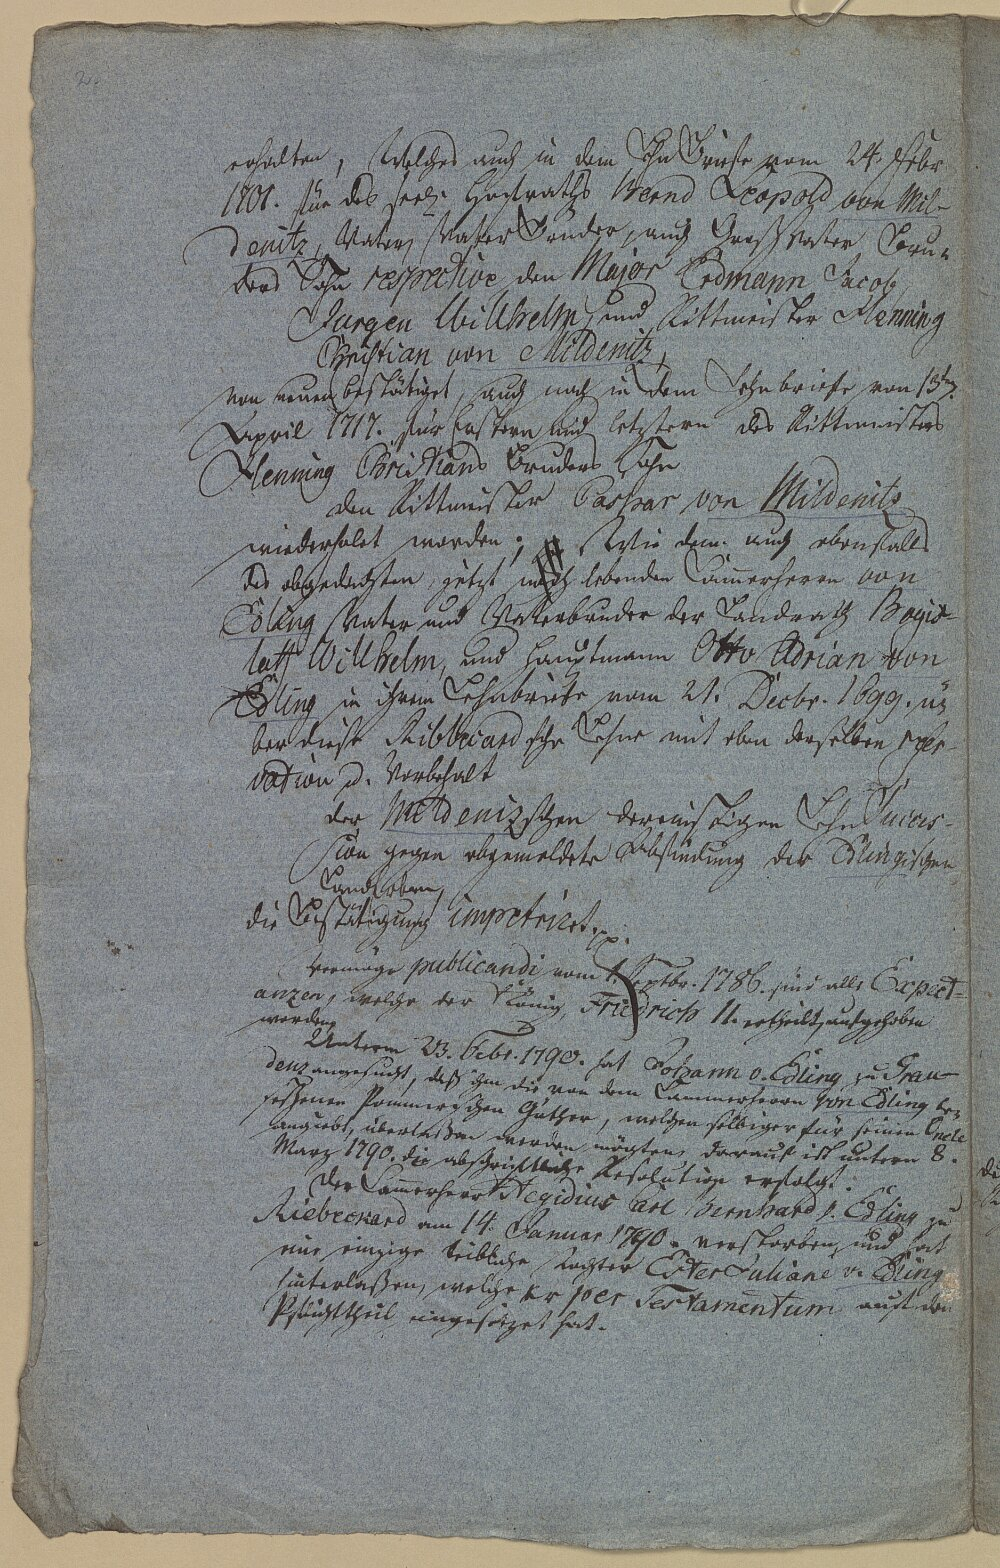 erhalten, Welches auch in dem Lehn Briefe vom 24.
1701. für des seel: Hofraths Bernd Leopold von Mil-
denitz, Vater, Vater Bruder, auch Groß Vater Bru-
ders Sohn respective den Major Erdmann Jacob
Jurgen Wilhelm und Rittmeister Henning
Christian von Mildenitz,
von neuen bestätiget, auch noch in dem Lehnbriefe von 13ten
April 1717. für Erstern und letztern des Rittmeisters
Henning Christians Bruders Sohn
den Rittmeister Caspar von Mildenitz
wiederholet worden; Wie denn auch ebenfalls
des obgedachten jetzt noch lebenden Cammerherrn von
Edling Vater und Vaterbruder der Landrath Bogis-
laff Wilhelm, und Hauptmann Otto Adrian von
Edling in ihrem Lehnbriefe vom 21. Decbr. 1699. ü-
ber diese Ribbecard sche Lehne mit eben derselben reser-
vation u. Vorbehalt
der Mildenizschen dereinstigen Lehn Succes-
sion gegen obgemeldete Abfindung der Edlingschen
Landtöben,
die Bestätigung impetriret pp.
vermöge publicandi vom Septbr. 1786. sind alle Expect-
anzen, welche der König Friedrich II. ertheilt, aufgehoben
worden
Unterm 23. Febr. 1790. hat Johann v. Edling zu Grau-
denz angesucht, daß ihm die von dem Cammerherrn von Edling be-
seßenen Pommerschen Güther, welchen selbiger für seinen Oncle
ausgiebt, überlaßen werden mögten, darauf ist unterm 8.
Marz 1790. die abschriftliche Resolution erfolgt.
Der Cammerherr Aegidius Carl Bernhard v. Edling zu
Riebeckard am 14. Januar 1790. verstorben und hat
eine einzige leibliche Tochter Ester Juliane v. Edling
hinterlaßen, welche er per Testamentum auf den
Pflichttheil eingesetzet hat.